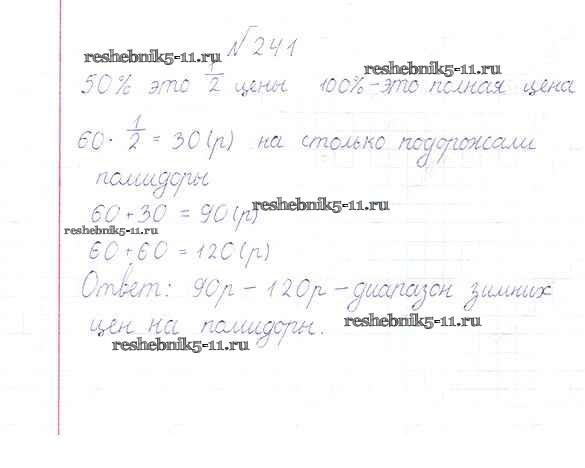 № 241
reshebnik5-11.ru
50% это 1/2 цены 100% - это полная цена
60 · 1/2 = 30 (р) на столько подорожали
помидоры
reshebnik5-11.ru
60 + 30 = 90 (р)
reshebnik5-11.ru
60 + 60 = 120 (р)
Ответ: 90р - 120р - диапазон зимних
цен на помидоры.
reshebnik5-11.ru
reshebnik5-11.ru